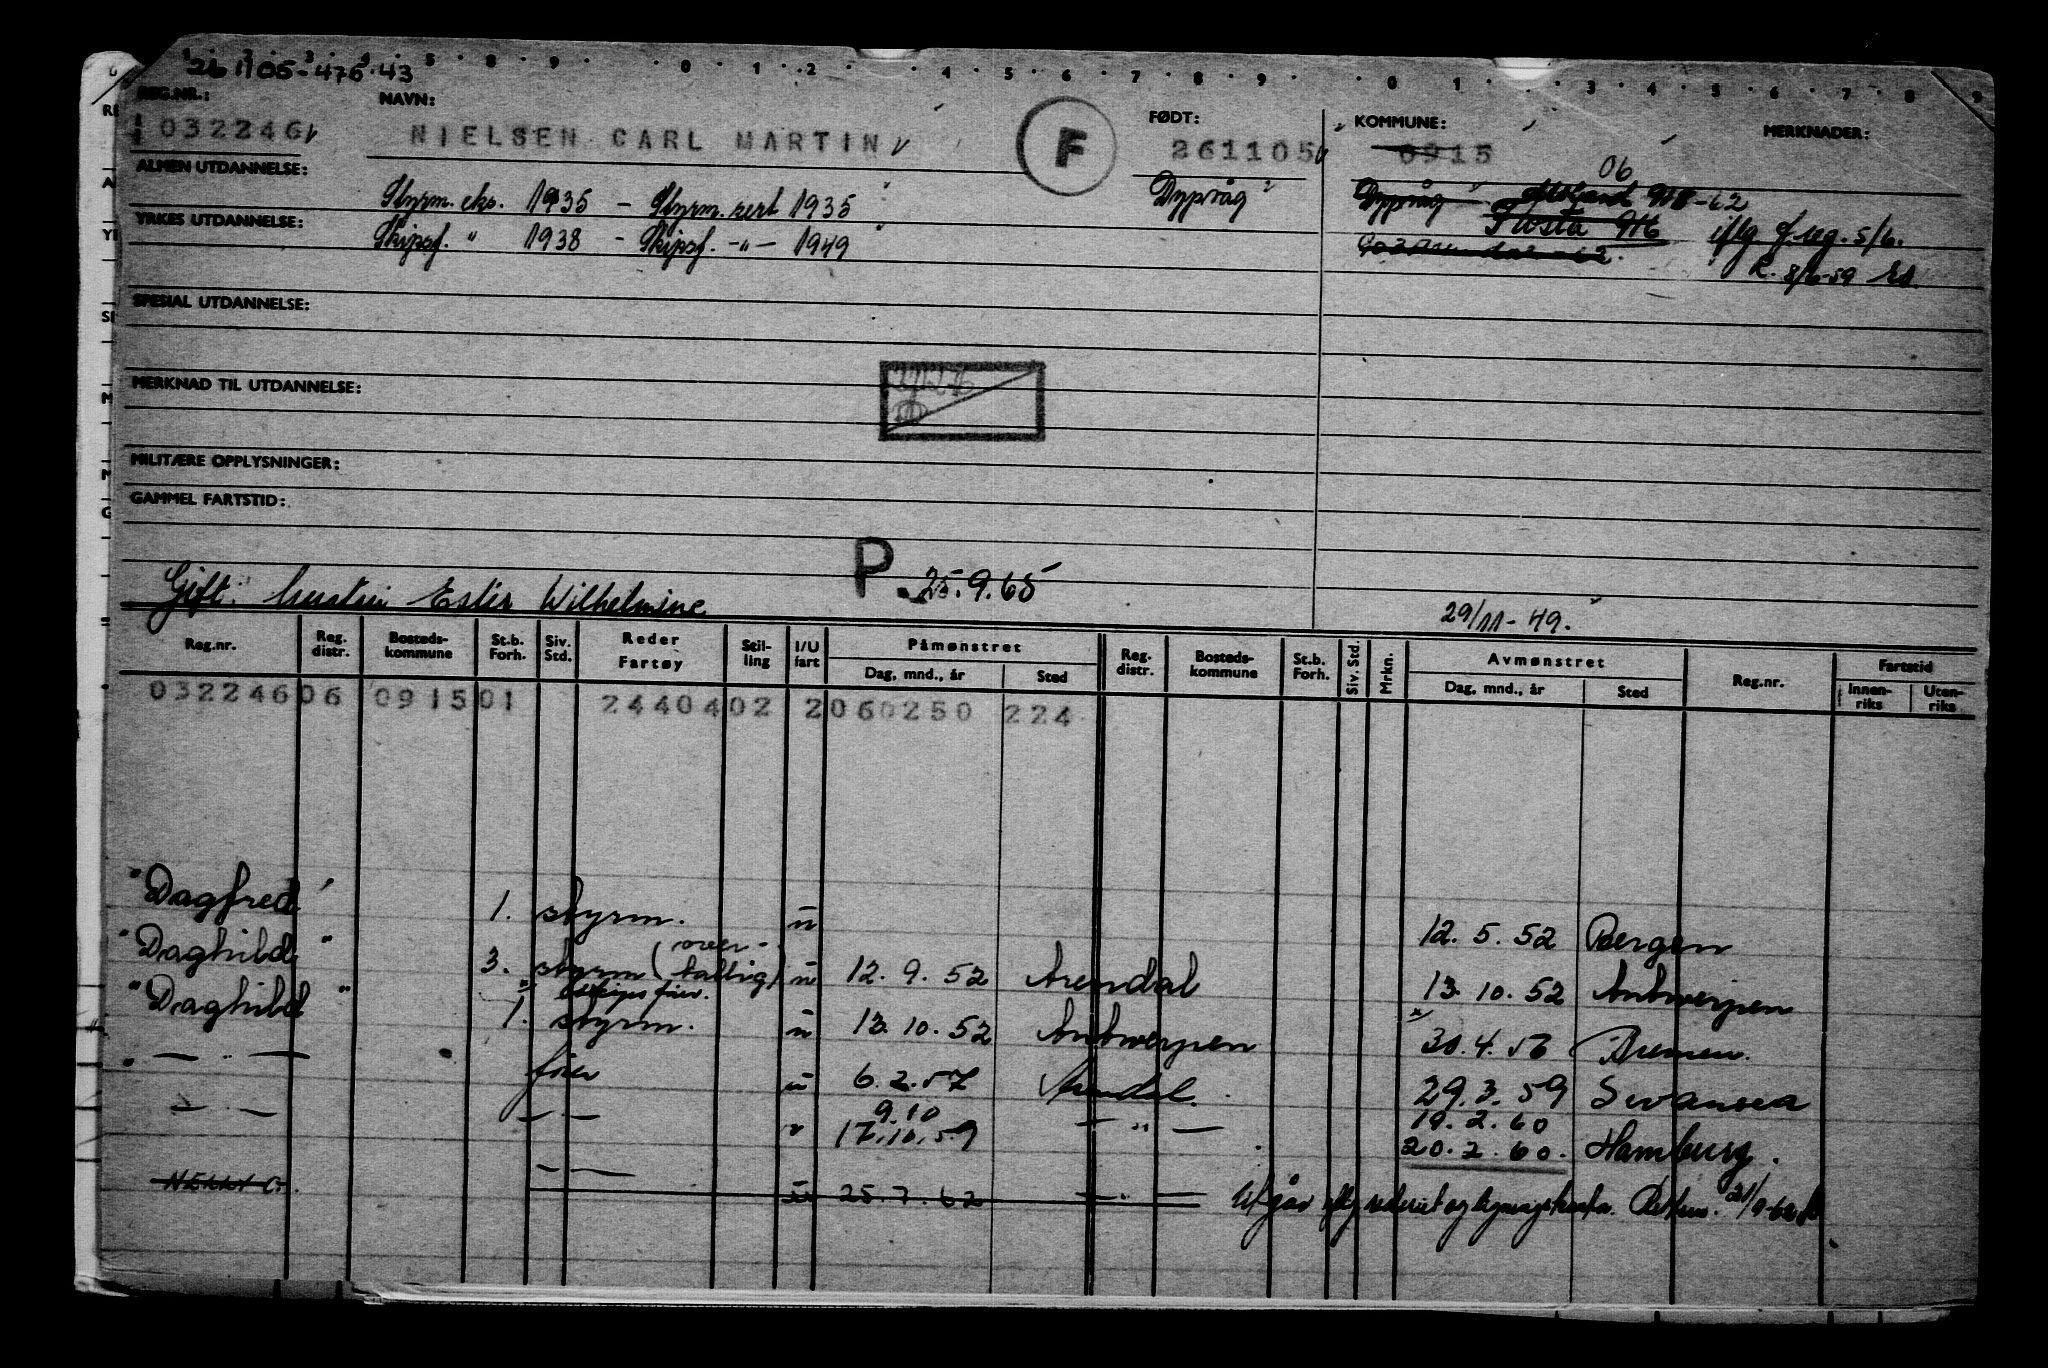 261105-475.43
REG.NR.: NAVN: FØDT: KOMMUNE: MERKNADER:
032246 NIELSEN CARL MARTIN F 261105 0915
06
ALMEN UTDANNELSE: Styrm. eks. 1935 - Styrm. sert 1935 Dypvåg Dypvåg 918-62
YRKES UTDANNELSE: Skipsf. " 1938 - Skipsf. -"- 1949 Flosta 916 iflg. f.reg. 5/6.
R. 8/6-59
SPESIAL UTDANNELSE:
MERKNAD TIL UTDANNELSE:
MILITÆRE OPPLYSNINGER:
GAMMEL FARTSTID:
P. 25.9.65
Gift: hustru Ester Wilhelmine 29/11-49.
Reg.nr. Reg. distr. Bosteds-kommune St.b. Forh. Siv. Std. Reder Fartøy Stil-ling I/U fart Påmønstret Dag, mnd., år Sted Reg. distr. Bosteds-kommune St.b. Forh. Siv. Std. Mrkn. Avmønstret Dag, mnd., år Sted Reg.nr. Fartstid Innen-riks Uten-riks
032246 06 0915 01 24404 02 2 060250 224
"Dagfred" 1. styrm. u 12. 5. 52 Bergen
"Daghild" 3. styrm (over-tallig) u 12. 9. 52 Arendal 13. 10. 52 Antwerpen
"Daghild" 1. styrm. u 13. 10. 52 Antwerpen 30. 4. 56 Bremen.
" — " — fører u 6. 2. 57 Arendal. 29. 3. 59 Swansea
9.10 19. 2. 60
— " — — " — u 17.10.59 — " — 20. 2. 60. Hamburg.
— " — u 25. 7. 62 — " — Utgår iflg rederiet og ligningskontor.